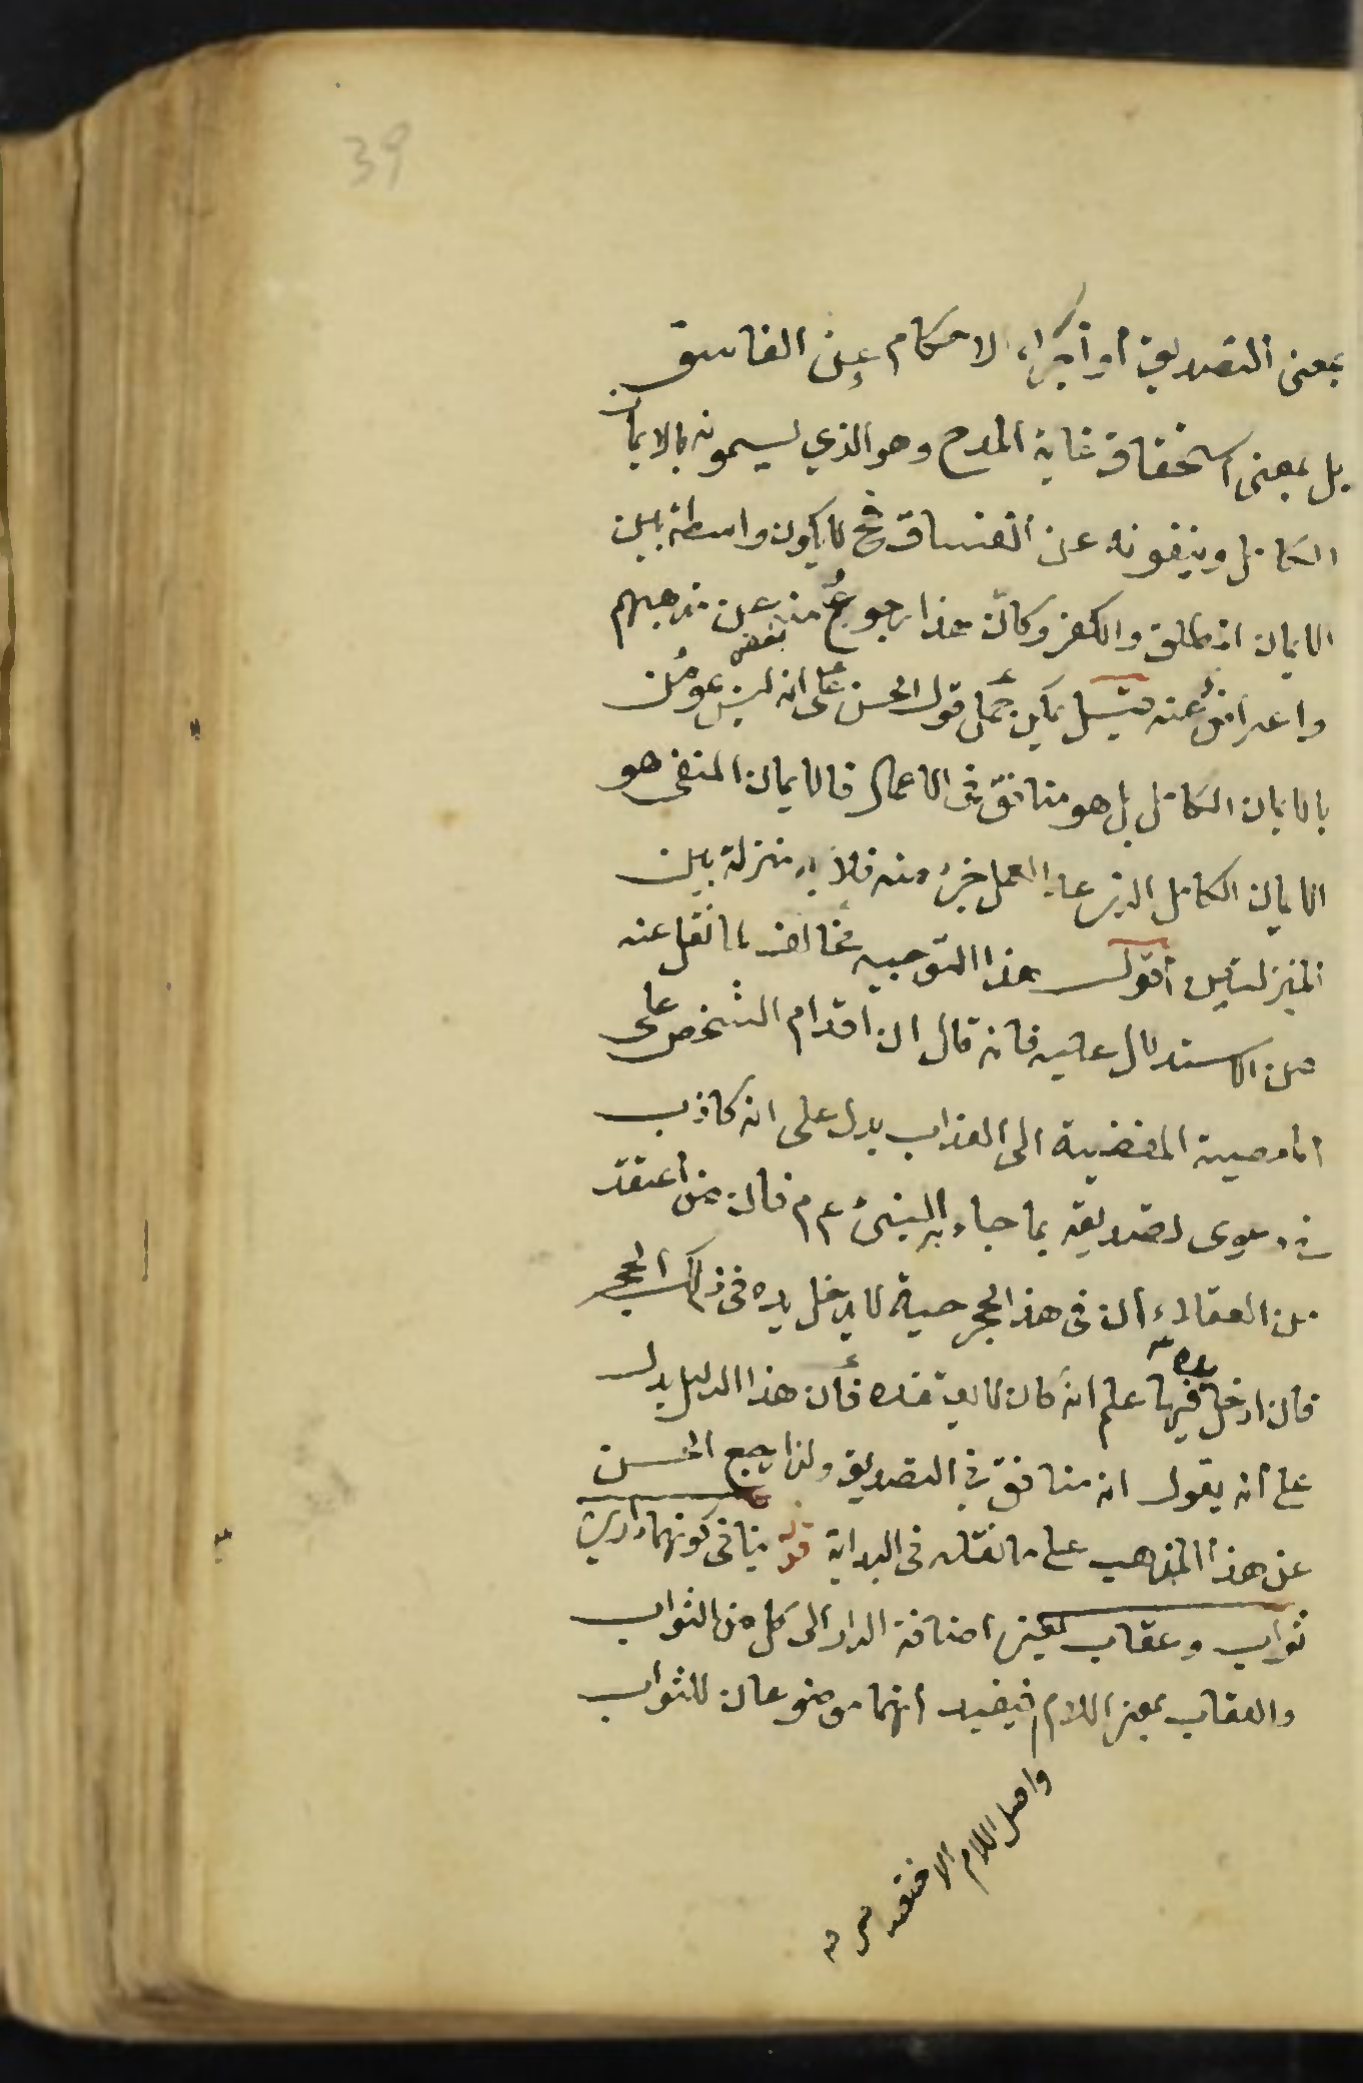 39
بمعنى التصديق او اجراء الاحكام عن الفاسق
بل بمعنى استحقاق غاية المدح وهو الذي يسمونه بالايمان
الكامل وينفونه عن الفساق فح لا يكون واسطة بين
الايمان المطلق والكفر وكان هذا رجوع منه عن مذهبهم
واعترافى عنه قيل يمكن حمل قول الحسن على انه ليس بمؤمن
بالايمان الكامل بل هو منافق فى الاعمال فالايمان المنفى هو
الايمان الكامل الذى العمل جزء منه فلا منزلة بين
المنزلتين اقول هذا التوجيه مخالف لما نقل عنه
من الاستدلال عليه فانه قال ان اقدام الشخص على
المعصية المفضية الى العذاب يدل على انه كاذب
فى دعوى تصديقه بما جاء به النبى عم فان من اعتقد
من العقلاء ان فى هذا الحجر حية لا يدخل يده فى ذلك الحجر
فان ادخل يده فيها علم انه كان لا يعتقده فان هذا الدليل يدل
على انه يقول انه منافق فى التصديق ولذا رجع الحسن
عن هذا المذهب على ما نقله فى البداية قوله ينافى كونهما دارى
ثواب وعقاب يعنى اضافة الدار الى كل من الثواب
والعقاب بمعنى اللام فيفيد انهما موضوعان للثواب
واصل اللام الاختصاص